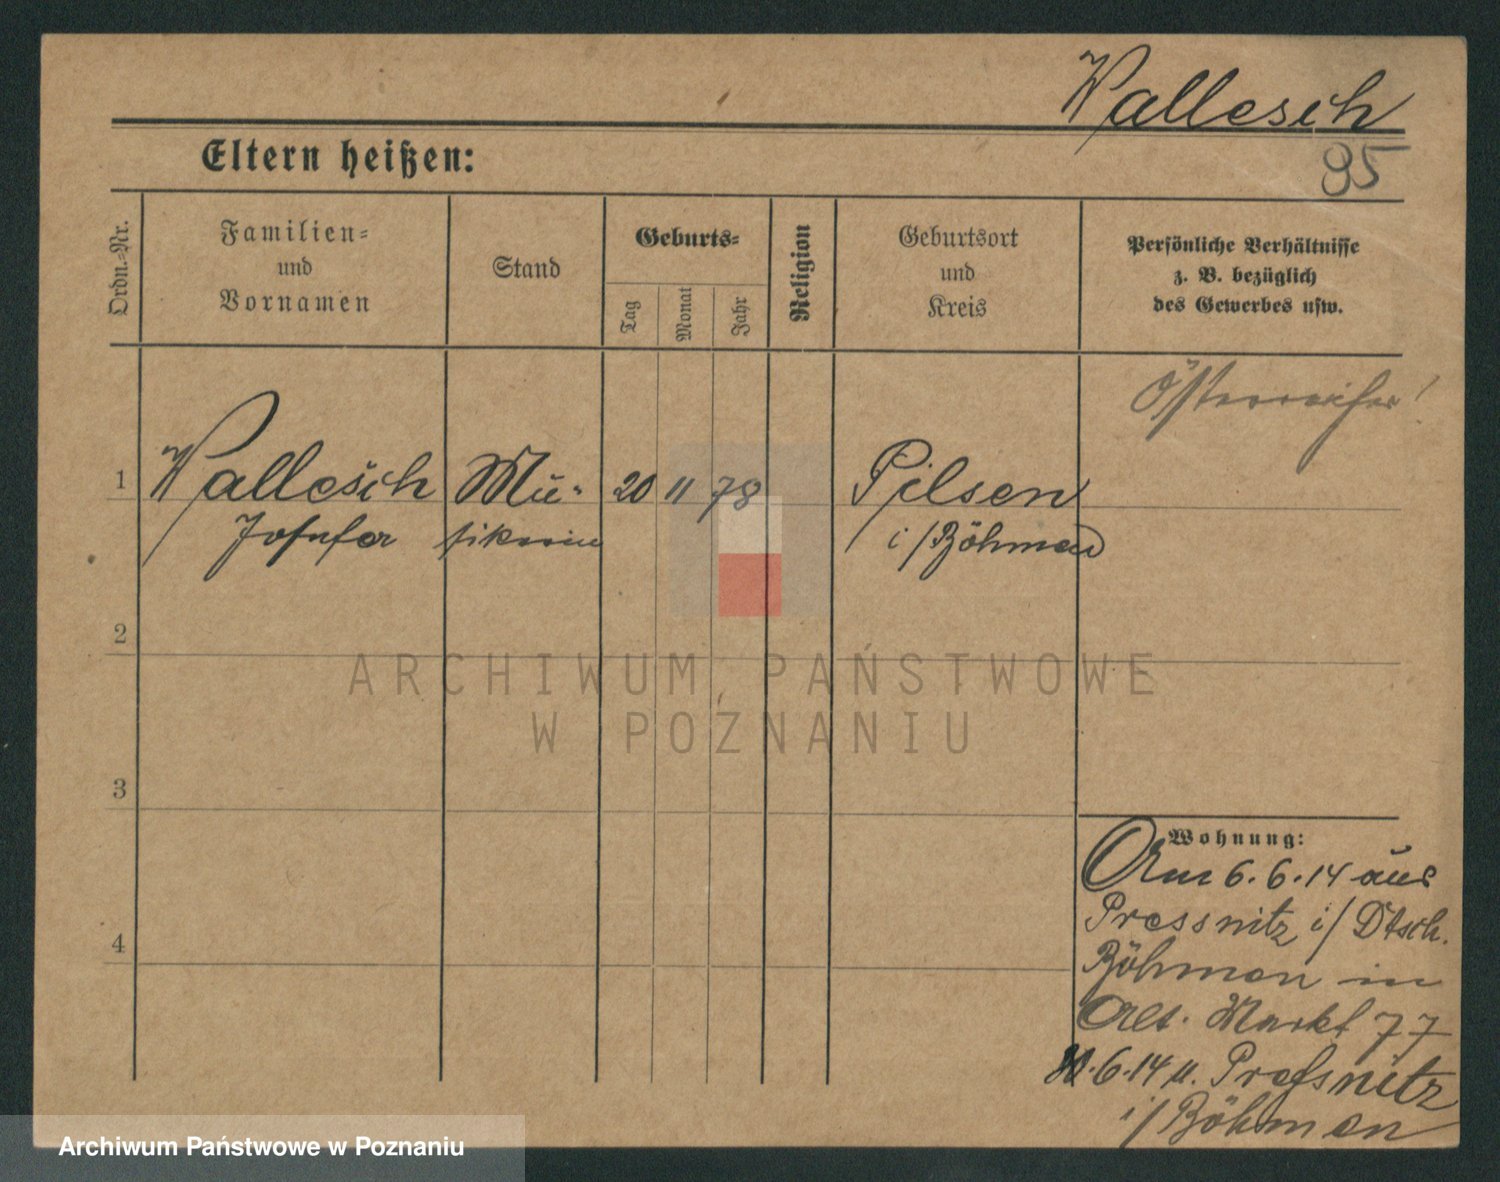 Wallesch
95
Eltern heißen:
Ordn.-Nr.
Familien-
und
Vornamen
Stand
Geburts-
Tag
Monat
Jahr
Religion
Geburtsort
und
Kreis
Persönliche Verhältnisse
z. B. bezüglich
des Gewerbes usw.
Österreicher!
1
Wallesch Mu- 20 11 78 Pilsen
Josefa sikerin i/Böhmen
2
ARCHIWUM PAŃSTWOWE
W POZNANIU
3
Wohnung:
Am 6.6.14 aus
Pressnitz i/Dtsch.
Böhmen in
Alt. Markt 77
.6.14 n. Pressnitz
i/Böhmen
4
Archiwum Państwowe w Poznaniu